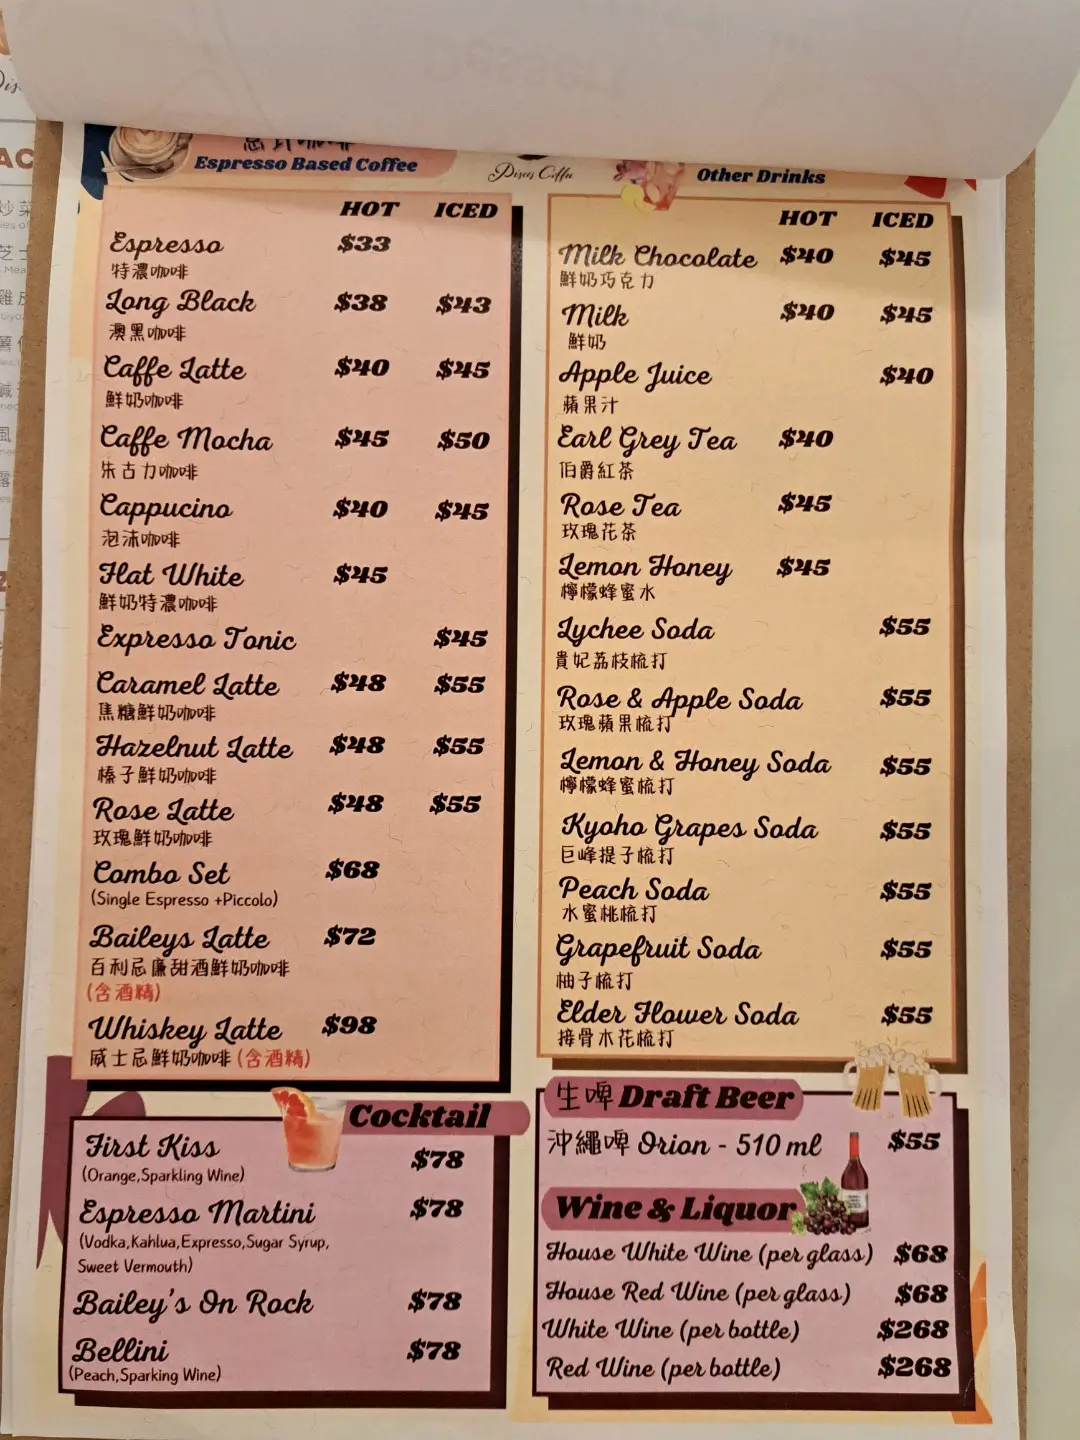 Espresso Based Coffee
HOT ICED
Espresso $33
特濃咖啡
Long Black $38 $43
澳黑咖啡
Caffe Latte $40 $45
鮮奶咖啡
Caffe Mocha $45 $50
朱古力咖啡
Cappucino $40 $45
泡沫咖啡
Flat White $45
鮮奶特濃咖啡
Expresso Tonic $45
Caramel Latte $48 $55
焦糖鮮奶咖啡
Hazelnut Latte $48 $55
榛子鮮奶咖啡
Rose Latte $48 $55
玫瑰鮮奶咖啡
Combo Set $68
(Single Espresso +Piccolo)
Baileys Latte $72
百利忌廉甜酒鮮奶咖啡
(含酒精)
Whiskey Latte $98
威士忌鮮奶咖啡 (含酒精)
Pisces Coffee
Other Drinks
HOT ICED
Milk Chocolate $40 $45
鮮奶巧克力
Milk $40 $45
鮮奶
Apple Juice $40
蘋果汁
Earl Grey Tea $40
伯爵紅茶
Rose Tea $45
玫瑰花茶
Lemon Honey $45
檸檬蜂蜜水
Lychee Soda $55
貴妃荔枝梳打
Rose & Apple Soda $55
玫瑰蘋果梳打
Lemon & Honey Soda $55
檸檬蜂蜜梳打
Kyoho Grapes Soda $55
巨峰提子梳打
Peach Soda $55
水蜜桃梳打
Grapefruit Soda $55
柚子梳打
Elder Flower Soda $55
接骨木花梳打
Cocktail
First Kiss $78
(Orange,Sparkling Wine)
Espresso Martini $78
(Vodka,Kahlua,Expresso,Sugar Syrup,
Sweet Vermouth)
Bailey's On Rock $78
Bellini $78
(Peach,Sparking Wine)
生啤 Draft Beer
沖繩啤 Orion - 510 ml $55
Wine & Liquor
House White Wine (per glass) $68
House Red Wine (per glass) $68
White Wine (per bottle) $268
Red Wine (per bottle) $268